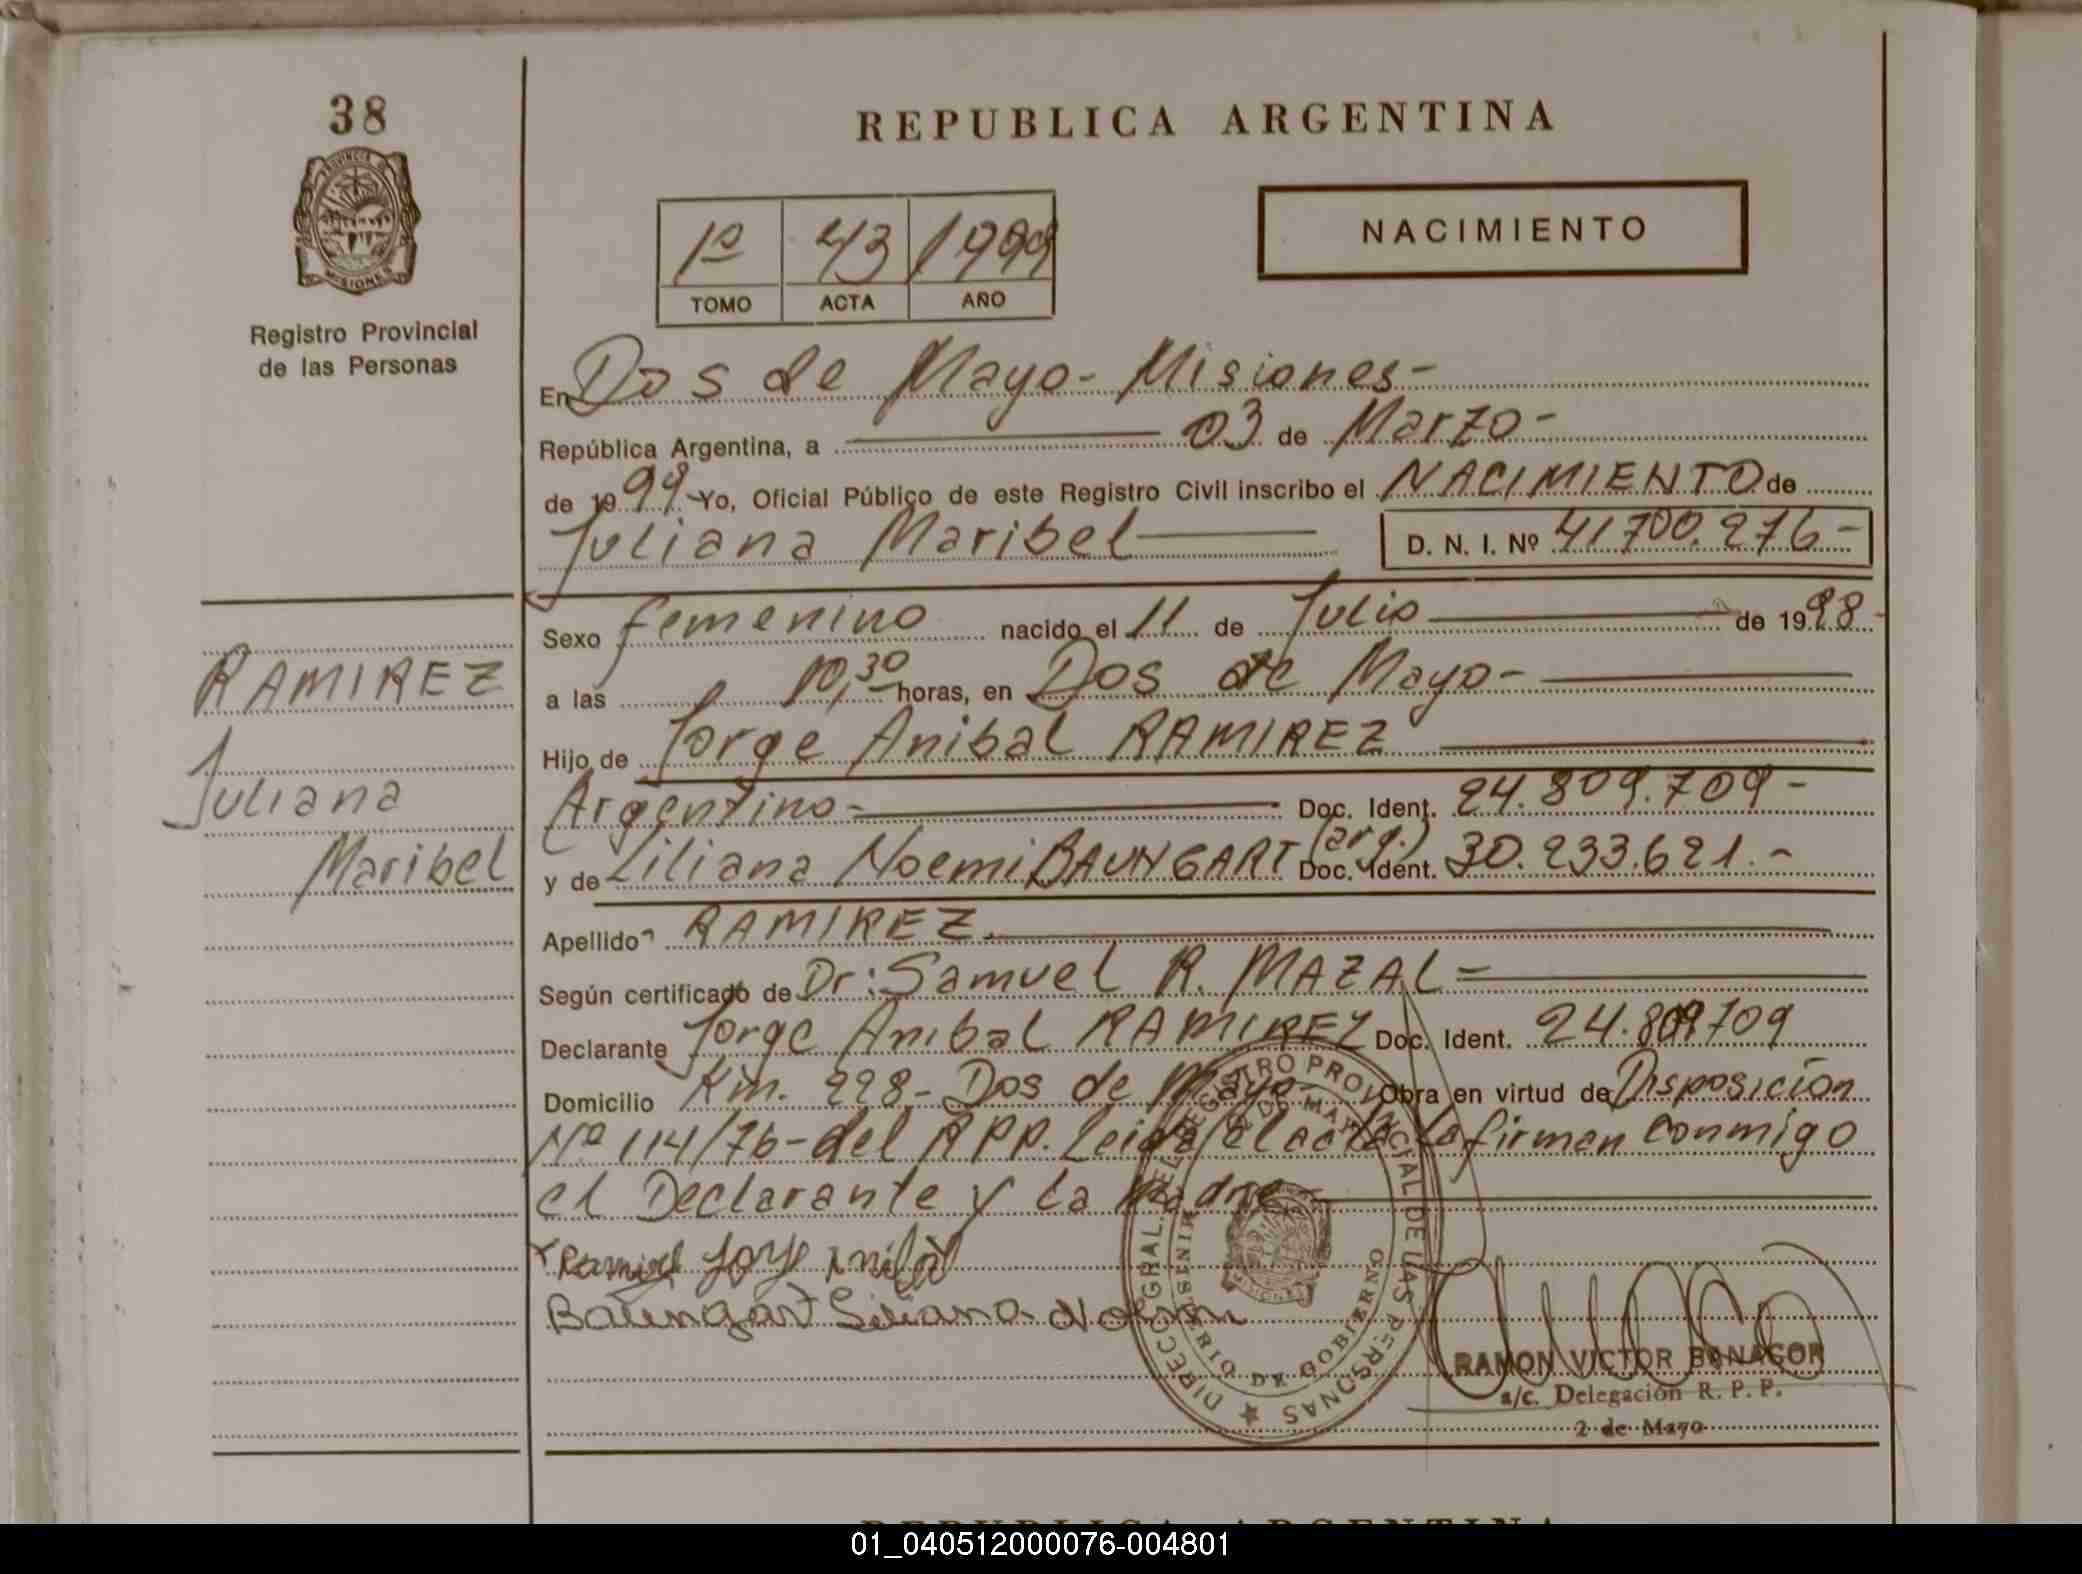 38
PROVINCIA DE
MISIONES
Registro Provincial
de las Personas
REPUBLICA ARGENTINA
1º 43 1999
TOMO ACTA AÑO
NACIMIENTO
En Dos de Mayo - Misiones -
República Argentina, a 03 de Marzo -
de 1999 - Yo, Oficial Público de este Registro Civil inscribo el NACIMIENTO de
Juliana Maribel D. N. I. Nº 41700.276 -
Sexo femenino nacido el 11 de Julio de 1998 -
a las 10,30 horas, en Dos de Mayo -
Hijo de Jorge Anibal RAMIREZ
Argentino - Doc. Ident. 24.809.709 -
y de Liliana Noemi BAUNGART (arg.) Doc. Ident. 30.233.621. -
Apellido RAMIREZ
Según certificado de Dr: Samuel R. MAZAL =
Declarante Jorge Anibal RAMIREZ Doc. Ident. 24.809709
Domicilio Km. 228 - Dos de Mayo - Obra en virtud de Disposicion
Nº 114/76 - del RPP. Leida el acta la firman conmigo
el Declarante y la Madre
RAMIREZ
Juliana
Maribel
Jorge
Baungart Liliana Noemi
DIRECC. GRAL. DEL REGISTRO PROVINCIAL DE LAS PERSONAS
2 DE MAYO
MINISTERIO DE GOBIERNO
RAMON VICTOR
a/c. Delegación R. P. P.
2 de Mayo
REPUBLICA ARGENTINA
01_040512000076-004801